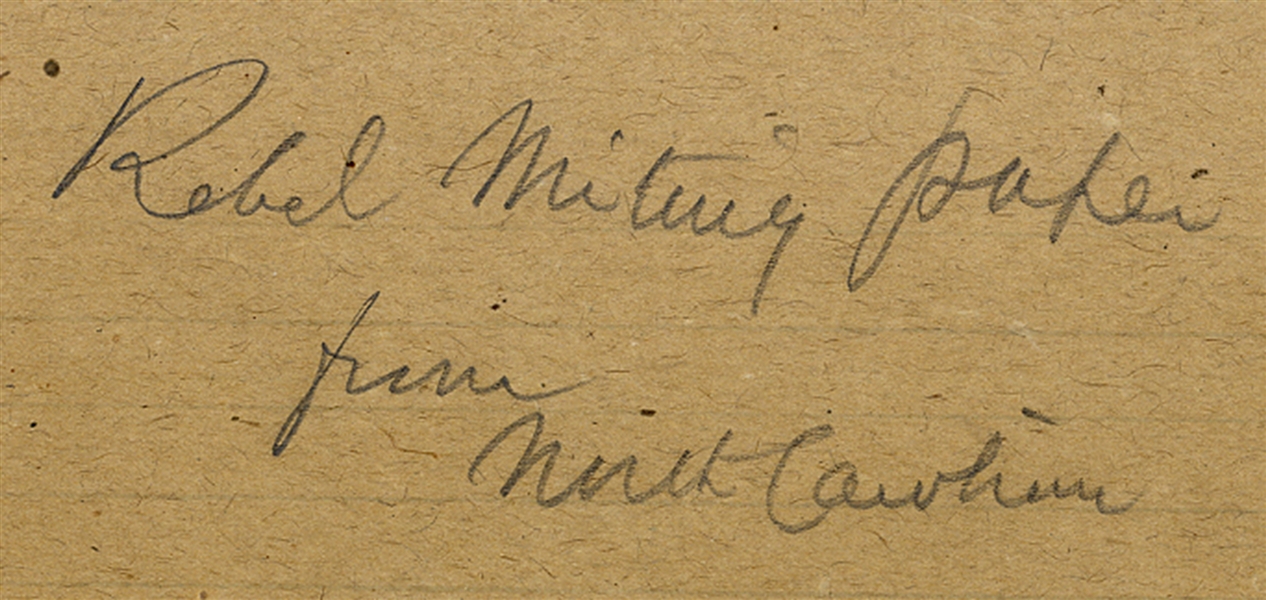 Rebel Writing paper
from
North Carolina